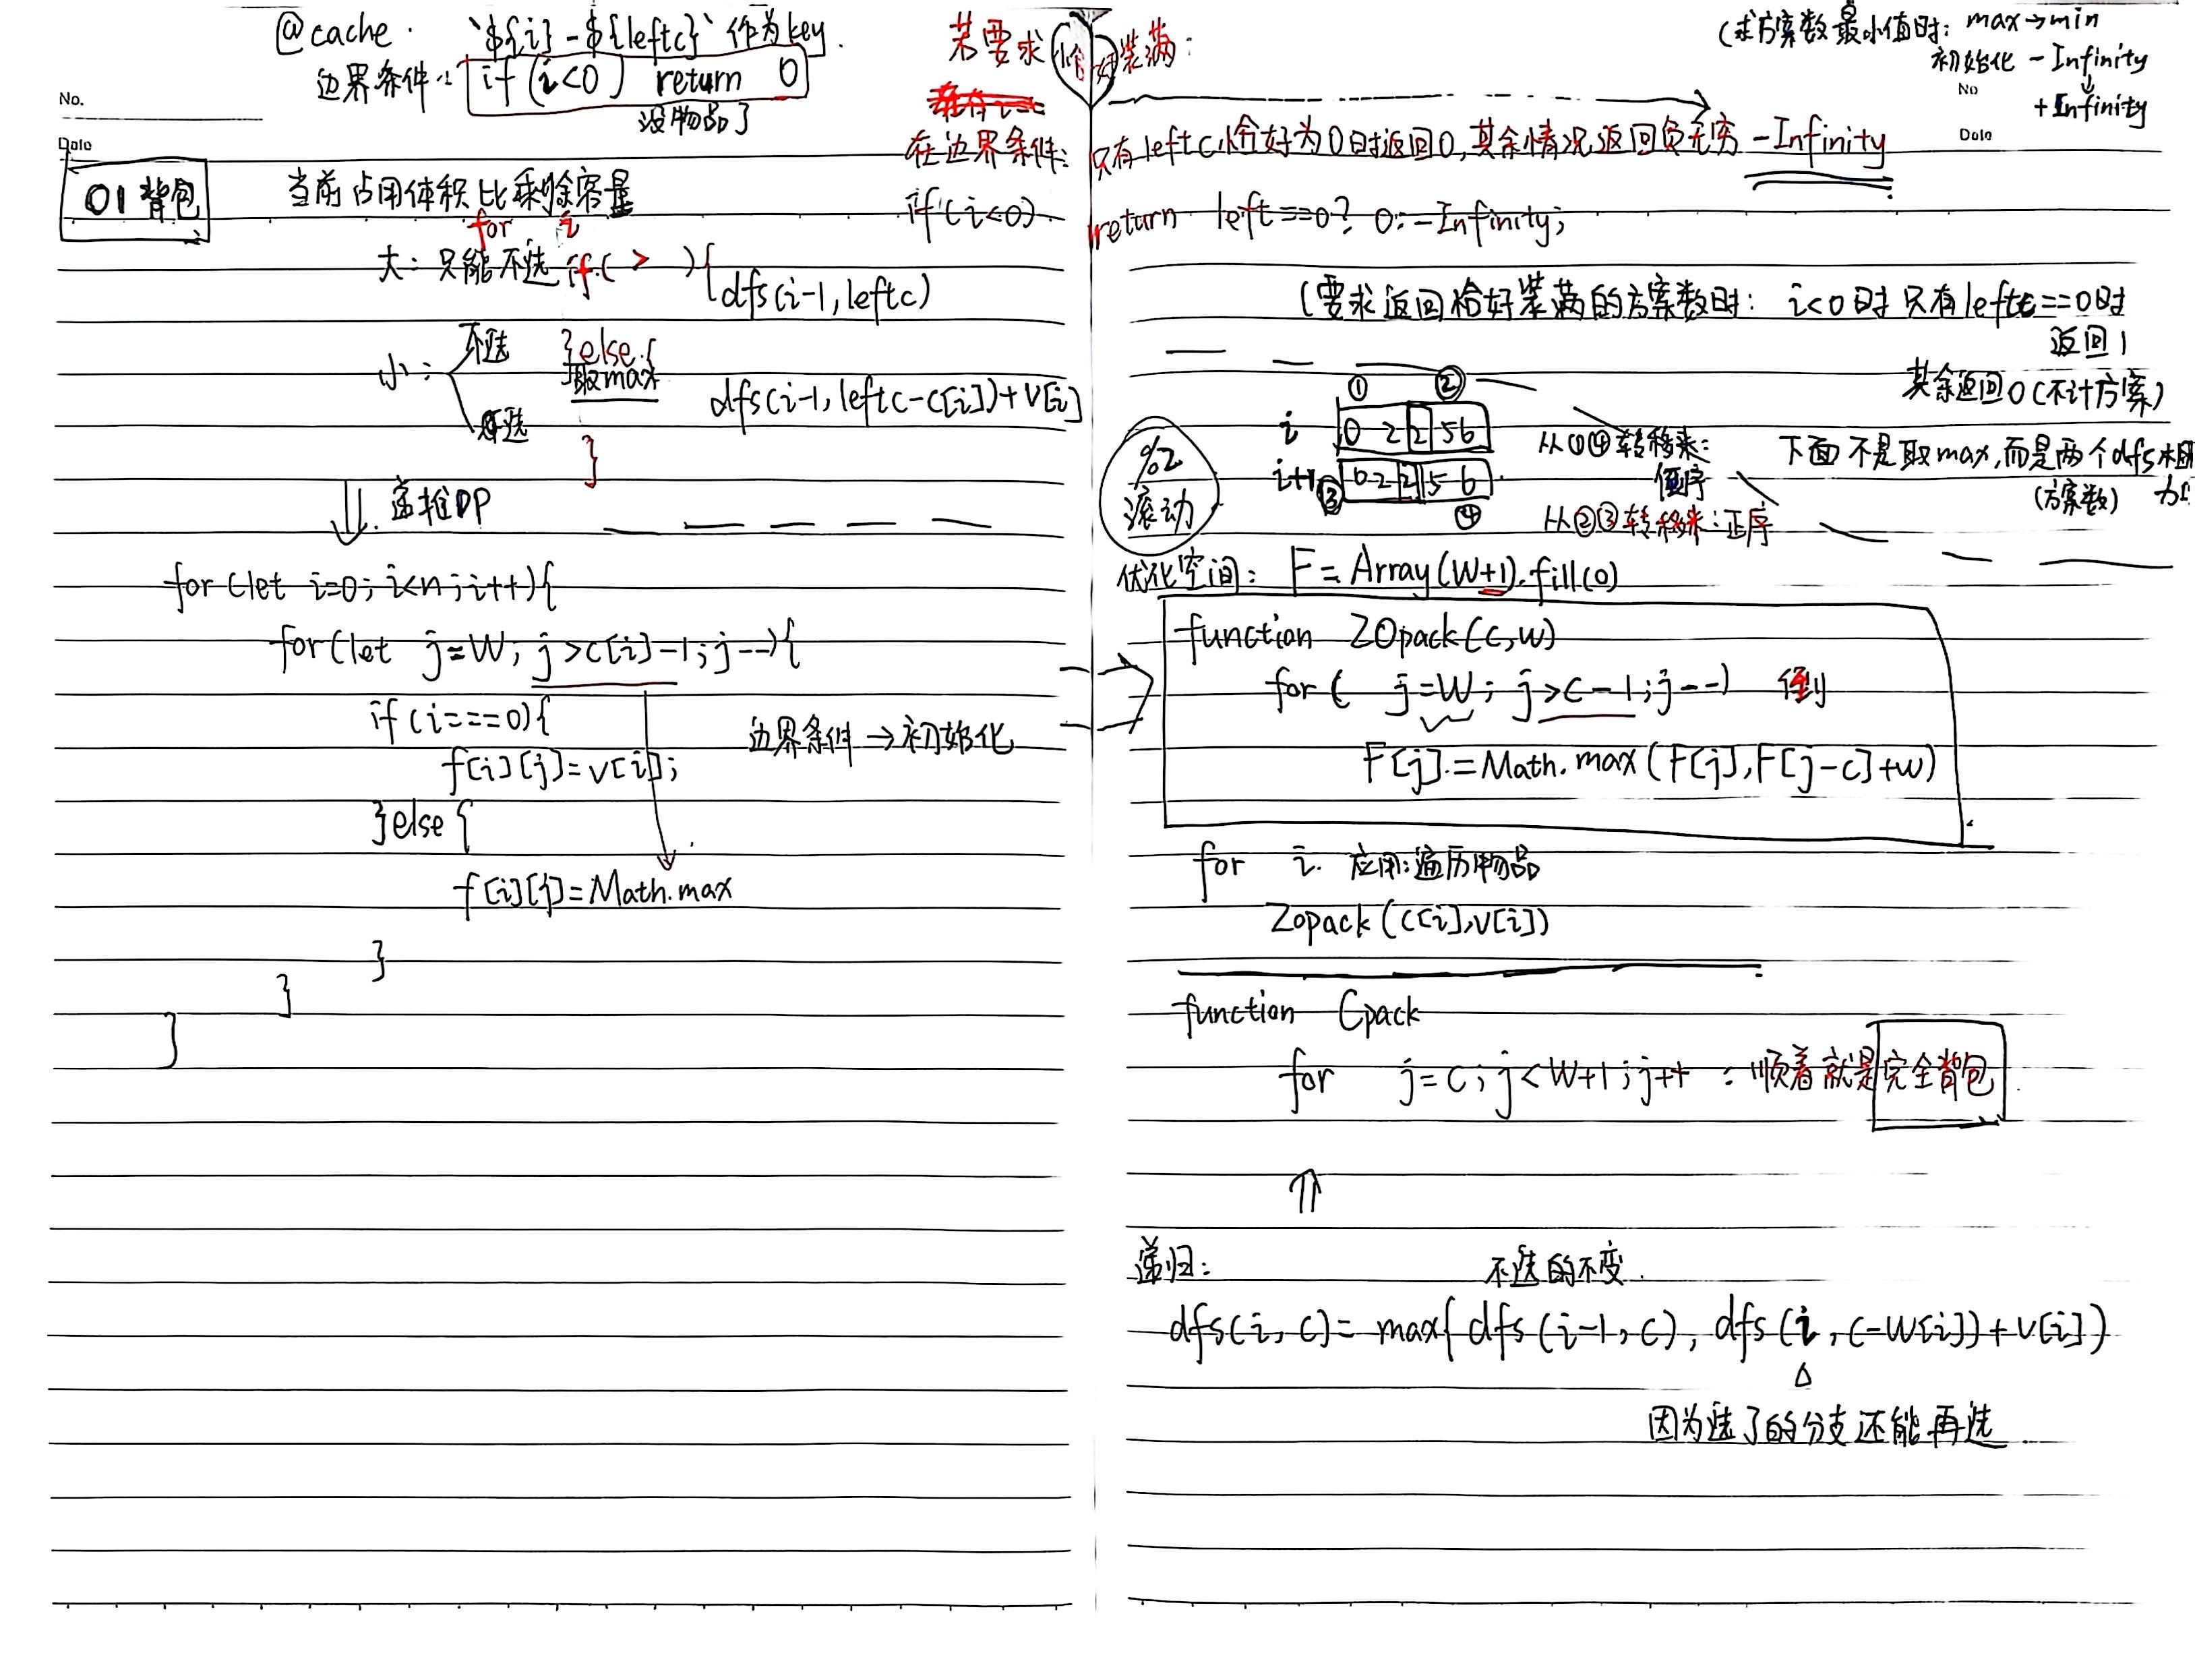 @cache. `${i}-${leftc}` 作为key.
边界条件: if (i<0) return 0
没物品了
No.
Date
01背包
当前占用体积比剩余容量
for i
大: 只能不选 if( > ){
dfs(i-1,leftc)
小: 不选
}else{
取max
可选
dfs(i-1,leftc-c[i])+v[i]
}
递推DP
for(let i=0;i<n;i++){
for(let j=W;j>c[i]-1;j--){
if(i===0){
f[i][j]=v[i];
边界条件→初始化
}else{
f[i][j]=Math.max
}
}
}
若要求恰好装满:
在边界条件: 只有leftc恰好为0时返回0,其余情况返回负无穷 -Infinity
if(i<0) return left==0? 0:-Infinity;
(求方案数最小值时: max→min
初始化 -Infinity
↓
+Infinity
No
Date
(要求返回恰好装满的方案数时: i<0时只有leftc==0时
返回1
其余返回0(不计方案)
下面不是取max,而是两个dfs相
加
(方案数)
① ②
i 0 2 2 5 6
i+1 0 2 2 5 6
③ ④
从①④转移来:
倒序
从②③转移来:正序
%2
滚动
优化空间: F=Array(W+1).fill(0)
function ZOpack(c,w)
for( j=W; j>c-1;j--) 倒
F[j].=Math.max(F[j],F[j-c]+w)
for i. 应用:遍历物品
Zopack(c[i],v[i])
function Cpack
for j=c;j<W+1;j++ : 顺着就是完全背包
⇑
递归: 不选的不变.
dfs(i,c)=max{dfs(i-1,c),dfs(i,c-w[i])+v[i])
△
因为选了的分支还能再选.